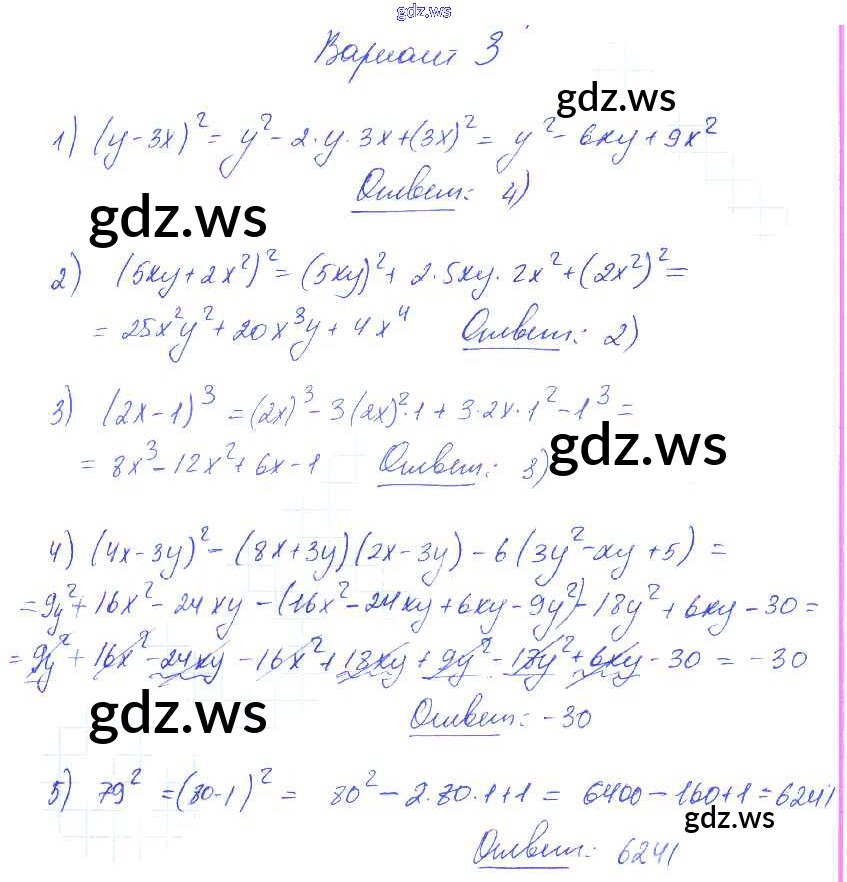 gdz.ws
Вариант 3
gdz.ws
1) (y-3x)² = y² - 2·y·3x+(3x)² = y² - 6xy + 9x²
Ответ: 4)
gdz.ws
2) (5xy+2x²)² = (5xy)² + 2·5xy·2x² + (2x²)² =
= 25x²y² + 20x³y + 4x⁴ Ответ: 2)
3) (2x-1)³ = (2x)³ - 3(2x)²·1 + 3·2x·1² - 1³ =
= 8x³ - 12x² + 6x - 1 Ответ: 3)
gdz.ws
4) (4x-3y)² - (8x+3y)(2x-3y) - 6(3y²-xy+5) =
= 9y² + 16x² - 24xy - (16x² - 24xy + 6xy - 9y²) - 18y² + 6xy - 30 =
= 9y² + 16x² - 24xy - 16x² + 18xy + 9y² - 18y² + 6xy - 30 = -30
gdz.ws
Ответ: -30
5) 79² = (80-1)² = 80² - 2·80·1+1 = 6400 - 160+1 = 6241
gdz.ws
Ответ: 6241